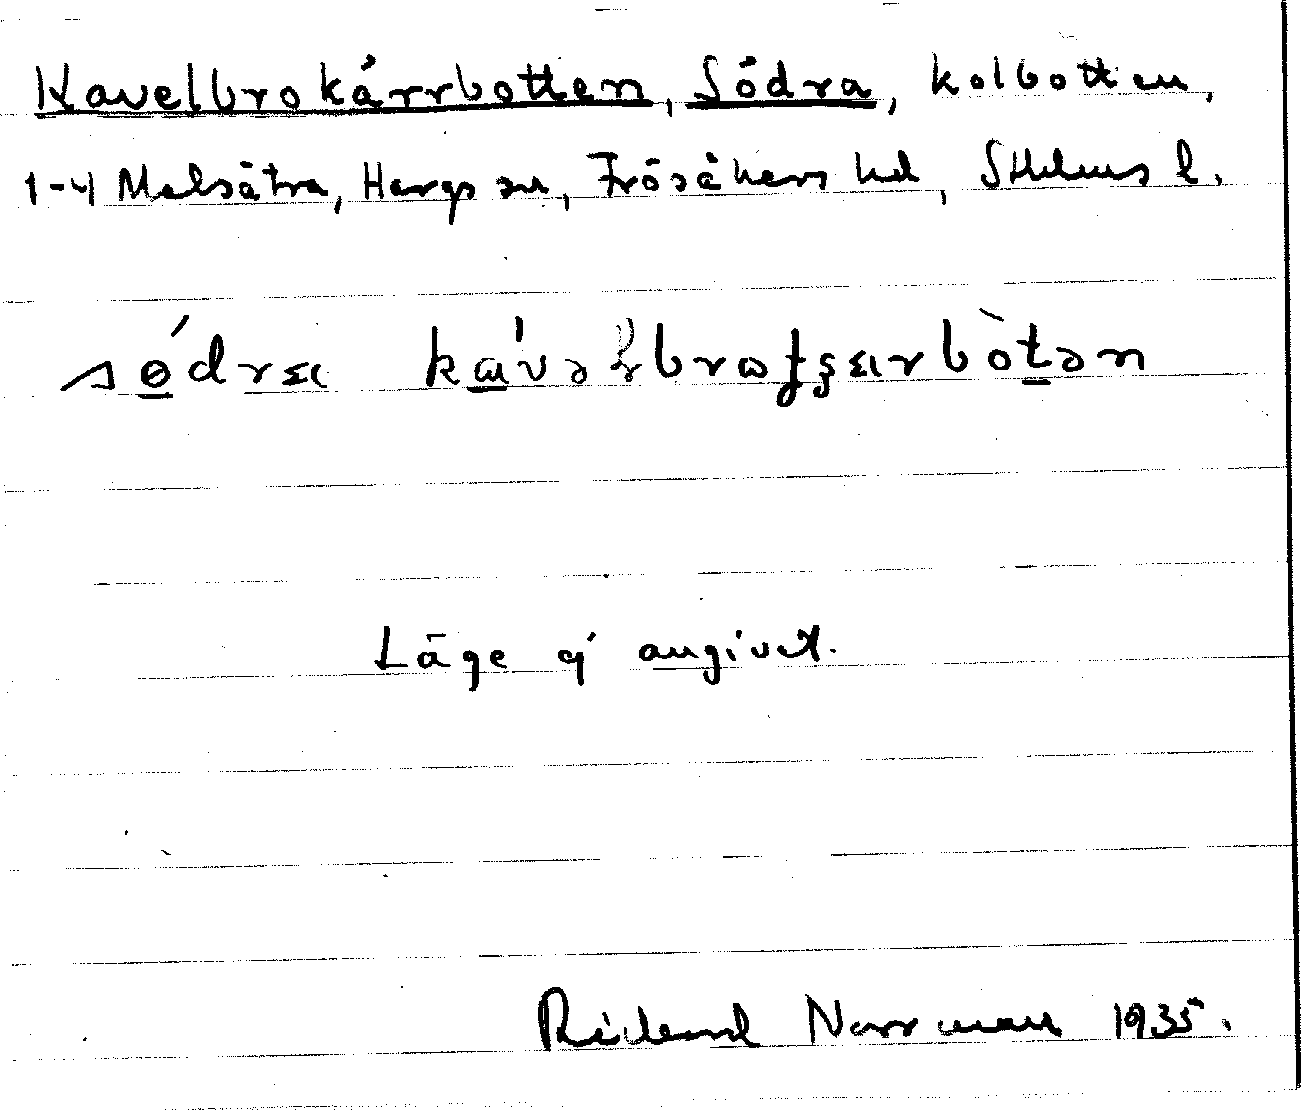 Kavelbrokärrbotten, Södra, kolbotten,
1-4 Malsätra, Hargs sn, Frösåkers hd, Sthlms l.
Läge ej angivet.
Rikard Norrman 1935.